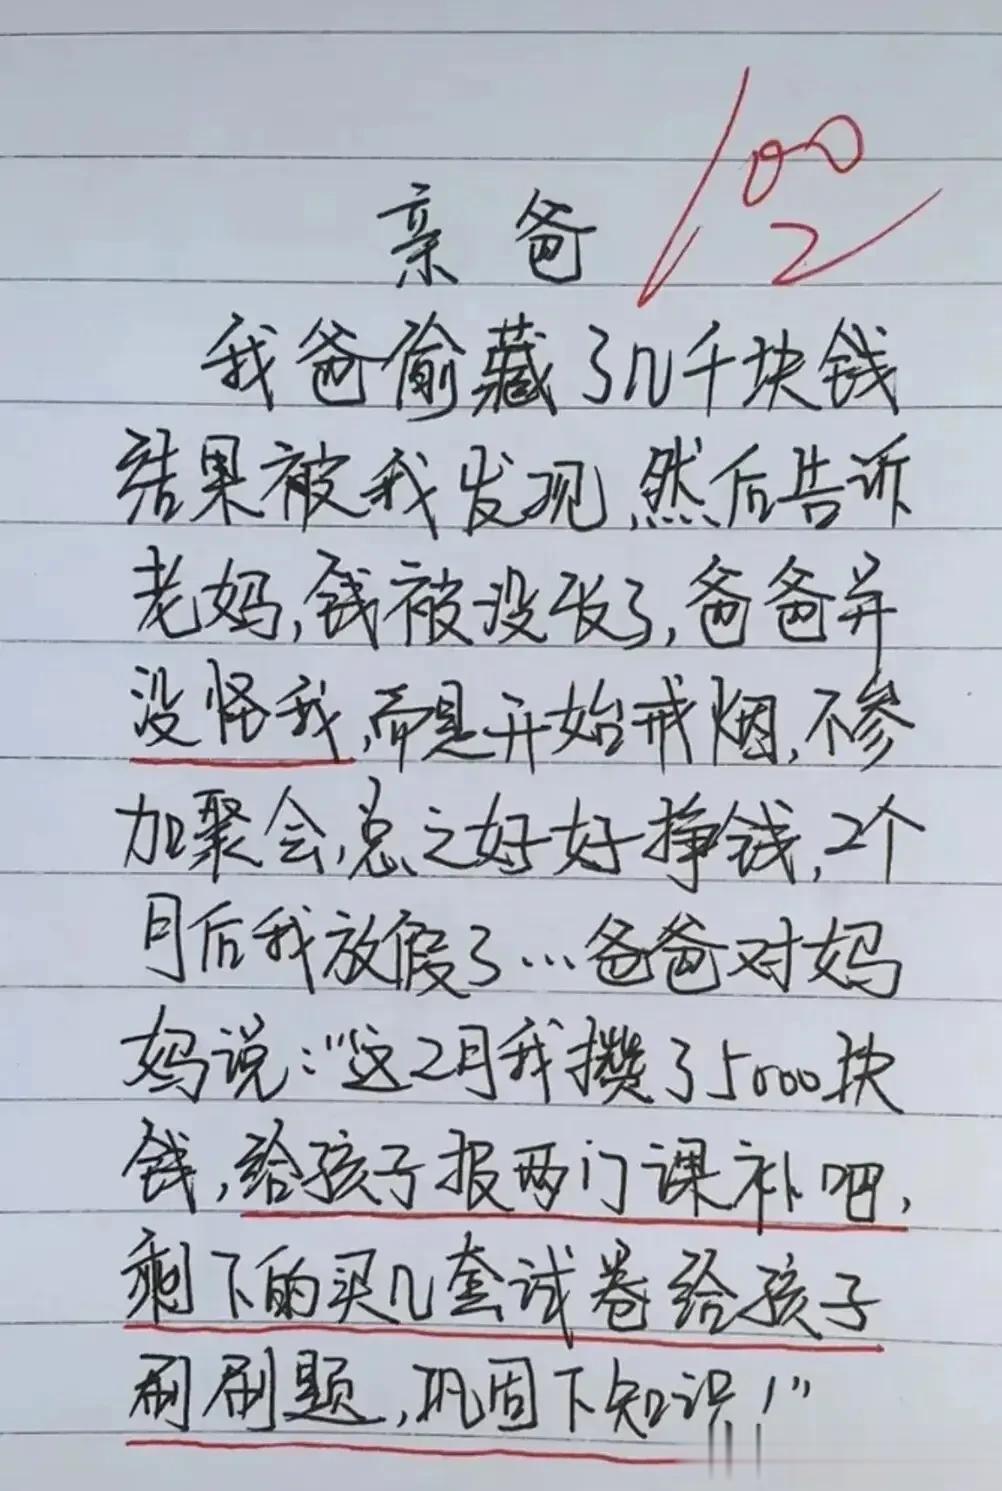 100
2
亲爸
我爸偷藏了几千块钱
结果被我发现,然后告诉
老妈,钱被没收了,爸爸并
没怪我,而是开始戒烟,不参
加聚会,总之好好挣钱,2个
月后我放假了…爸爸对妈
妈说:"这2月我攒了5000块
钱,给孩子报两门课补吧,
剩下的买几套试卷给孩子
刷刷题,巩固下知识!"